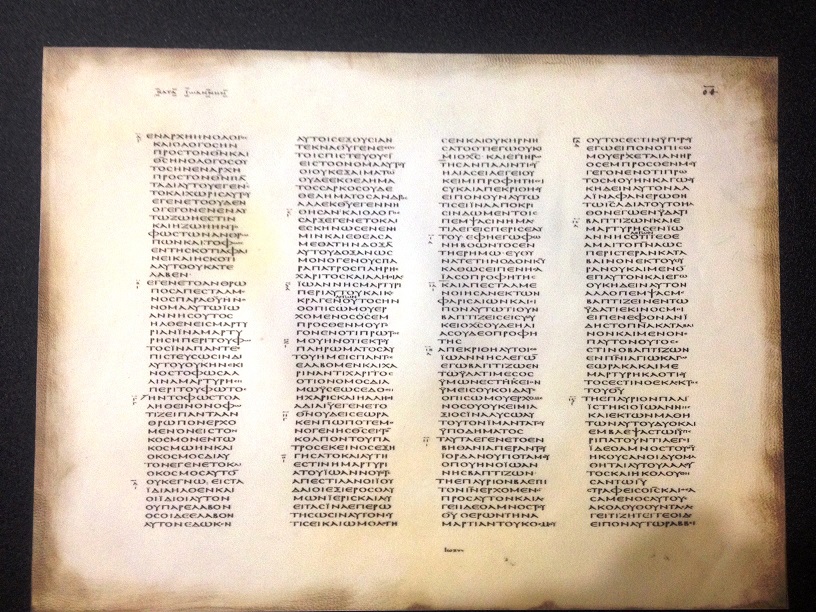 ΚΑΤΑ ΙΩΑΝΝΗΝ
ΕΝΑΡΧΗΗΝΟΛΟΓΟ
ΚΑΙΟΛΟΓΟCΗΝ
ΠΡΟCΤΟΝΘΝΚΑΙ
ΘCΗΝΟΛΟΓΟCΟΥ
ΤΟCΗΝΕΝΑΡΧΗ
ΠΡΟCΤΟΝΘΝΠΑ
ΤΑΔΙΑΥΤΟΥΕΓΕΝΕ
ΤΟΚΑΙΧΩΡΙCΑΥΤΥ
ΕΓΕΝΕΤΟΟΥΔΕΝ
ΟΓΕΓΟΝΕΝΕΝΑΥ
ΤΩΖΩΗΕCΤΙΝ
ΚΑΙΗΖΩΗΗΝΤ
ΦΩCΤΩΝΑΝΘΡΩ
ΠΩΝΚΑΙΤΟΦΩ
ΕΝΤΗCΚΟΤΙΑΦΑΙ
ΝΕΙΚΑΙΗCΚΟΤΙ
ΑΑΥΤΟΟΥΚΑΤΕ
ΛΑΒΕΝ
ΕΓΕΝΕΤΟΑΝΘΡΩ
ΠΟCΑΠΕCΤΑΛΜΕ
ΝΟCΠΑΡΑΘΥΗΝ
ΝΟΜΑΑΥΤΩΙΩ
ΑΝΝΗCΟΥΤΟC
ΗΛΘΕΝΕΙCΜΑΡΤΥ
ΡΙΑΝΙΝΑΜΑΡΤΥ
ΡΗCΗΠΕΡΙΤΟΥΦΩ
ΤΟCΙΝΑΠΑΝΤΕ
ΠΙCΤΕΥCΩCΙΝΔΙ
ΑΥΤΟΥΟΥΚΗΝΕΚΙ
ΝΟCΤΟΦΩCΑΛΛ
ΙΝΑΜΑΡΤΥΡΗCΗ
ΠΕΡΙΤΟΥΦΩΤΟC
ΗΝΤΟΦΩCΤΟΑ
ΛΗΘΕΙΝΟΝΟΦΩ
ΤΙΖΕΙΠΑΝΤΑΑΝ
ΘΡΩΠΟΝΕΡΧΟ
ΜΕΝΟΝΕΙCΤΟ
ΚΟCΜΟΝΕΝΤΩ
ΚΟCΜΩΗΝΚΑΙ
ΟΚΟCΜΟCΔΙΑΥ
ΤΟΝΕΓΕΝΕΤΟΚΑΙ
ΟΚΟCΜΟCΑΥΤΟ
ΟΥΚΕΓΝΩ, ΕΙCΤΑ
ΙΔΙΑΗΛΘΕΝΚΑΙ
ΟΙΙΔΙΟΙΑΥΤΟΝ
ΟΥΠΑΡΕΛΑΒΟΝ
ΟCΟΙΔΕΕΛΑΒΟΝ
ΑΥΤΟΝΕΔΩΚΕΝ
ΑΥΤΟΙCΕΞΟΥCΙΑΝ
ΤΕΚΝΑΘΥΓΕΝΕC
ΤΟΙCΠΙCΤΕΥΟΥCΙ
ΕΙCΤΟΟΝΟΜΑΑΥΤΥ
ΟΙΟΥΚΕΞΑΙΜΑΤΩ
ΟΥΔΕΕΚΘΕΛΗΜΑ
ΤΟCCΑΡΚΟCΟΥΔΕ
ΘΕΛΗΜΑΤΟCΑΝΔΡ
ΑΛΛΕΚΘΥΕΓΕΝΝΗ
ΘΗCΑΝΚΑΙΟΛΟΓΟ
CΑΡΞΕΓΕΝΕΤΟΚΑΙ
ΕCΚΗΝΩCΕΝΕΝΗ
ΜΙΝΚΑΙΕΘΕΑCΑ
ΜΕΘΑΤΗΝΔΟΞΑ
ΑΥΤΟΥΔΟΞΑΝΩC
ΜΟΝΟΓΕΝΟΥCΠΑ
ΡΑΠΑΤΡΟCΠΛΗΡΗC
ΧΑΡΙΤΟCΚΑΙΑΛΗΘΙΑ
ΙΩΑΝΝΗCΜΑΡΤΥΡΙ
ΠΕΡΙΑΥΤΟΥΚΑΙΚΕ
ΚΡΑΓΕΝΟΥΤΟCΗΝ
ΟΟΠΙCΩΜΟΥΕΡ
ΧΟΜΕΝΟCΟCΕΜ
ΠΡΟCΘΕΝΜΟΥΓΕ
ΓΟΝΕΝΟΤΙΠΡΩΤΟC
ΜΟΥΗΝΟΤΙΕΚΤΥ
ΠΛΗΡΩΜΑΤΟCΑΥ
ΤΟΥΗΜΕΙCΠΑΝΤΕC
ΕΛΑΒΟΜΕΝΚΑΙΧΑ
ΡΙΝΑΝΤΙΧΑΡΙΤΟC
ΟΤΙΟΝΟΜΟCΔΙΑ
ΜΩΥCΕΩCΕΔΟΘΗ
ΗΧΑΡΙCΚΑΙΗΑΛΗΘΙ
ΑΔΙΑΙΥΕΓΕΝΕΤΟ
ΘΝΟΥΔΕΙCΕΩΡΑ
ΚΕΝΠΩΠΟΤΕΜΟ
ΝΟΓΕΝΗCΘCΕΙCΤΟ
ΚΟΛΠΟΝΤΟΥΠΑ
ΤΡΟCΕΚΕΙΝΟCΕΞΗ
ΓΗCΑΤΟΚΑΙΑΥΤΗ
ΕCΤΙΝΗΜΑΡΤΥΡΙ
ΑΤΟΥΙΩΑΝΝΟΥΟΤΕ
ΑΠΕCΤΙΛΑΝΟΙΙΟΥ
ΔΑΙΟΙΕΞΙΕΡΟCΟΛΥ
ΜΩΝΙΕΡΙCΚΑΙΛΕΥ
ΕΙΤΑCΙΝΑΕΠΕΡΩ
ΤΗCΩCΙΝΑΥΤΟΝCΥ
ΤΙCΕΙΚΑΙΩΜΟΛΟΓΗ
CΕΝΚΑΙΟΥΚΗΡΝΗ
CΑΤΟΟΤΙΕΓΩΟΥΚ
ΙΜΙΟΧC ΚΑΙΕΠΗΡΩ
ΤΗCΑΝΠΑΛΙΝΤΙ
ΗΛΙΑCΕΙΛΕΓΕΙΟΥ
ΚΕΙΜΙΠΡΟΦΗΤΗC
CΥΚΑΙΑΠΕΚΡΙΘΗΟΥ
ΕΙΠΟΝΟΥΝΑΥΤΩ
ΤΙCΕΙΙΝΑΑΠΟΚΡΙ
CΙΝΔΩΜΕΝΤΟΙC
ΠΕΜΨΑCΙΝΗΜΑC
ΤΙΛΕΓΕΙCΠΕΡΙCΕΑΥ
ΤΟΥ ΕΦΗΕΓΩΦΩ
ΝΗΒΟΩΝΤΟCΕΝ
ΤΗΕΡΗΜΩ ΕΥΘΥ
ΝΑΤΕΤΗΝΟΔΟΝΚΥ
ΚΑΘΩCΕΙΠΕΝΗCΑ
ΙΑCΟΠΡΟΦΗΤΗC
ΚΑΙΑΠΕCΤΑΛΜΕ
ΝΟΙΗCΑΝΕΚΤΩΝ
ΦΑΡΙCΑΙΩΝΚΑΙΕΙ
ΠΟΝΑΥΤΩΤΙΟΥΝ
ΒΑΠΤΙΖΕΙCΕΙCΥΟΥ
ΚΕΙΟΧCΟΥΔΕΗΛΙ
ΑCΟΥΔΕΟΠΡΟΦΗ
ΤΗC
ΑΠΕΚΡΙΘΗΑΥΤΟΙC
ΙΩΑΝΝΗCΛΕΓΩ
ΕΓΩΒΑΠΤΙΖΩΕΝ
ΤΩΥΔΑΤΙΜΕCΟC
ΥΜΩΝΕCΤΗΚΕΙΟΝ
ΥΜΕΙCΟΥΚΟΙΔΑΤΕ
ΟΠΙCΩΜΟΥΕΡΧΟΜΕ
ΝΟCΟΥΟΥΚΕΙΜΙΑ
ΞΙΟCΙΝΑΛΥCΩΑΥ
ΤΟΥΤΟΝΙΜΑΝΤΑΤΥ
ΥΠΟΔΗΜΑΤΟC
ΤΑΥΤΑΕΓΕΝΕΤΟΕΝ
ΒΗΘΑΝΙΑΠΕΡΑΝΤΥ
ΙΟΡΔΑΝΟΥΠΟΤΑΜΥ
ΟΠΟΥΗΝΟΙΩΑΝ
ΝΗCΒΑΠΤΙΖΩΝ
ΤΗΕΠΑΥΡΙΟΝΒΛΕΠΙ
ΤΟΝΙΝΕΡΧΟΜΕΝ
ΠΡΟCΑΥΤΟΝΚΑΙΛΕ
ΓΕΙΙΔΕΟΑΜΝΟCΤΥ
ΘΥ ΟΕΡΩΝΤΗΝΑ
ΜΑΡΤΙΑΝΤΟΥΚΟCΜΥ
ΟΥΤΟCΕCΤΙΝΥΠΕΡΥ
ΕΓΩΕΙΠΟΝΟΠΙCΩ
ΜΟΥΕΡΧΕΤΑΙΑΝΗΡ
ΟCΕΜΠΡΟCΘΕΝΜΥ
ΓΕΓΟΝΕΝΟΤΙΠΡΩ
ΤΟCΜΟΥΗΝΚΑΓΩΥ
ΚΗΔΕΙΝΑΥΤΟΝΑΛ
ΛΙΝΑΦΑΝΕΡΩΘΗ
ΤΩΙCΛΔΙΑΤΟΥΤΟΗΛ
ΘΟΝΕΓΩΕΝΥΔΑΤΙ
ΒΑΠΤΙΖΩΝΚΑΙΕ
ΜΑΡΤΥΡΗCΕΝΙΩ
ΑΝΝΗCΟΤΙΤΕΘΕ
ΑΜΑΙΤΟΠΝΑΩC
ΠΕΡΙCΤΕΡΑΝΚΑΤΑ
ΒΑΙΝΟΝΕΚΤΟΥΟΥ
ΡΑΝΟΥΚΑΙΜΕΝΟ
ΕΠΑΥΤΟΝΚΑΙΕΓΩ
ΟΥΚΗΔΕΙΝΑΥΤΟΝ
ΑΛΛΟΠΕΜΨΑCΜΕ
ΒΑΠΤΙΖΕΙΝΕΝΤΩ
ΥΔΑΤΙΕΚΙΝΟCΜΟΙ
ΕΙΠΕΝΕΦΟΝΑΝΙ
ΔΗCΤΟΠΝΑΚΑΤΑΒΑΙ
ΝΟΝΚΑΙΜΕΝΟΝΕ
ΠΑΥΤΟΝΟΥΤΟCΕ
CΤΙΝΟΒΑΠΤΙΖΩΝ
ΕΝΠΝΙΑΓΙΩΚΑΓΩ
ΕΩΡΑΚΑΚΑΙΜΕ
ΜΑΡΤΥΡΗΚΑΟΤΙΟΥ
ΤΟCΕCΤΙΝΟΕΚΛΕΚΤΟC
ΤΟΥΘΥ
ΤΗΕΠΑΥΡΙΟΝΠΑΛΙ
ΙCΤΗΚΙΟΙΩΑΝΝΗC
ΚΑΙΕΚΤΩΝΜΑΘΗ
ΤΩΝΑΥΤΟΥΔΥΟΚΑΙ
ΕΜΒΛΕΨΑCΤΩΙΥΠΕ
ΡΙΠΑΤΟΥΝΤΙΛΕΓΙ
ΙΔΕΟΑΜΝΟCΤΟΥΘΥ
ΗΚΟΥCΑΝΟΙΔΥΟΜΑ
ΘΗΤΑΙΑΥΤΟΥΛΑΛΟΥ
ΤΟCΚΑΙΗΚΟΛΟΥΘΗ
CΑΝΤΩΙΥ
CΤΡΑΦΕΙCΟΙCΚΑΙΘΕΑ
CΑΜΕΝΟCΑΥΤΟΥ
ΑΚΟΛΟΥΘΟΥΝΤΑCΛΕ
ΓΕΙΤΙΖΗΤΕΙΤΕΟΙΔΕ
ΕΙΠΟΝΑΥΤΩΡΑΒΒΕΙ